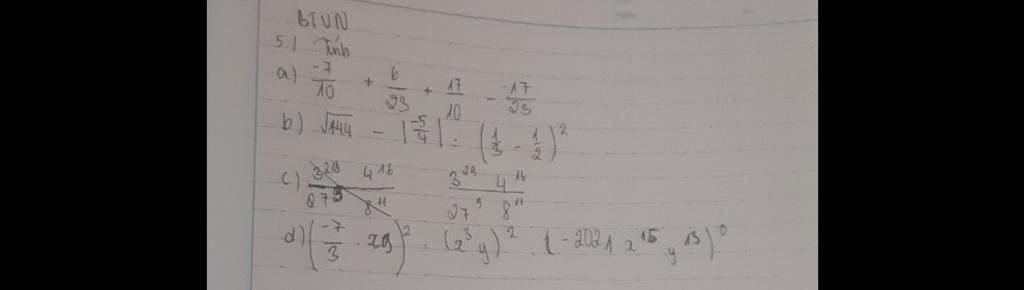 BTVN
5.1 Tính
a) -7/10 + 6/23 + 17/10 - -17/23
b) √144 - |-5/4| : (1/3 - 1/2)²
c) 3²⁹ 4¹⁶ / 27⁹ 8¹¹
d) (-7/3 . xy)² . (x³y)² . (-2021 x¹⁵ y¹³)⁰